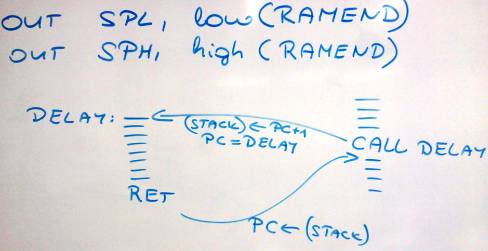 OUT SPL, low(RAMEND)
OUT SPH, high(RAMEND)
DELAY:
(STACK) ← PC+1
PC = DELAY
CALL DELAY
RET
PC ← (STACK)